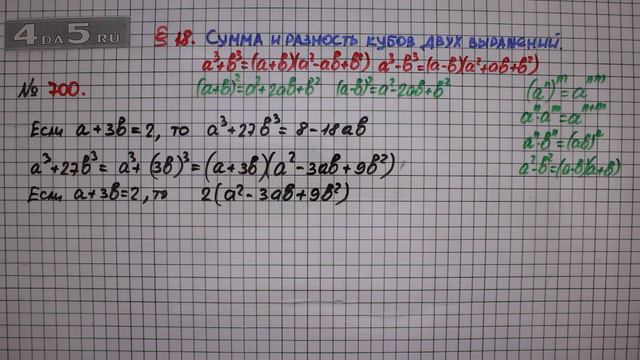 4DA5.RU
§ 18. Сумма и разность кубов двух выражений.
a³+b³=(a+b)(a²-ab+b²) a³-b³=(a-b)(a²+ab+b²)
№ 700.
(a+b)²=a²+2ab+b² (a-b)²=a²-2ab+b²
(aⁿ)ᵐ=aⁿᵐ
aⁿ·aᵐ=aⁿ⁺ᵐ
aⁿ·bⁿ=(ab)ⁿ
a²-b²=(a-b)(a+b)
Если a+3b=2, то a³+27b³=8-18ab
a³+27b³= a³+(3b)³=(a+3b)(a²-3ab+9b²)
Если a+3b=2, то 2(a²-3ab+9b²)